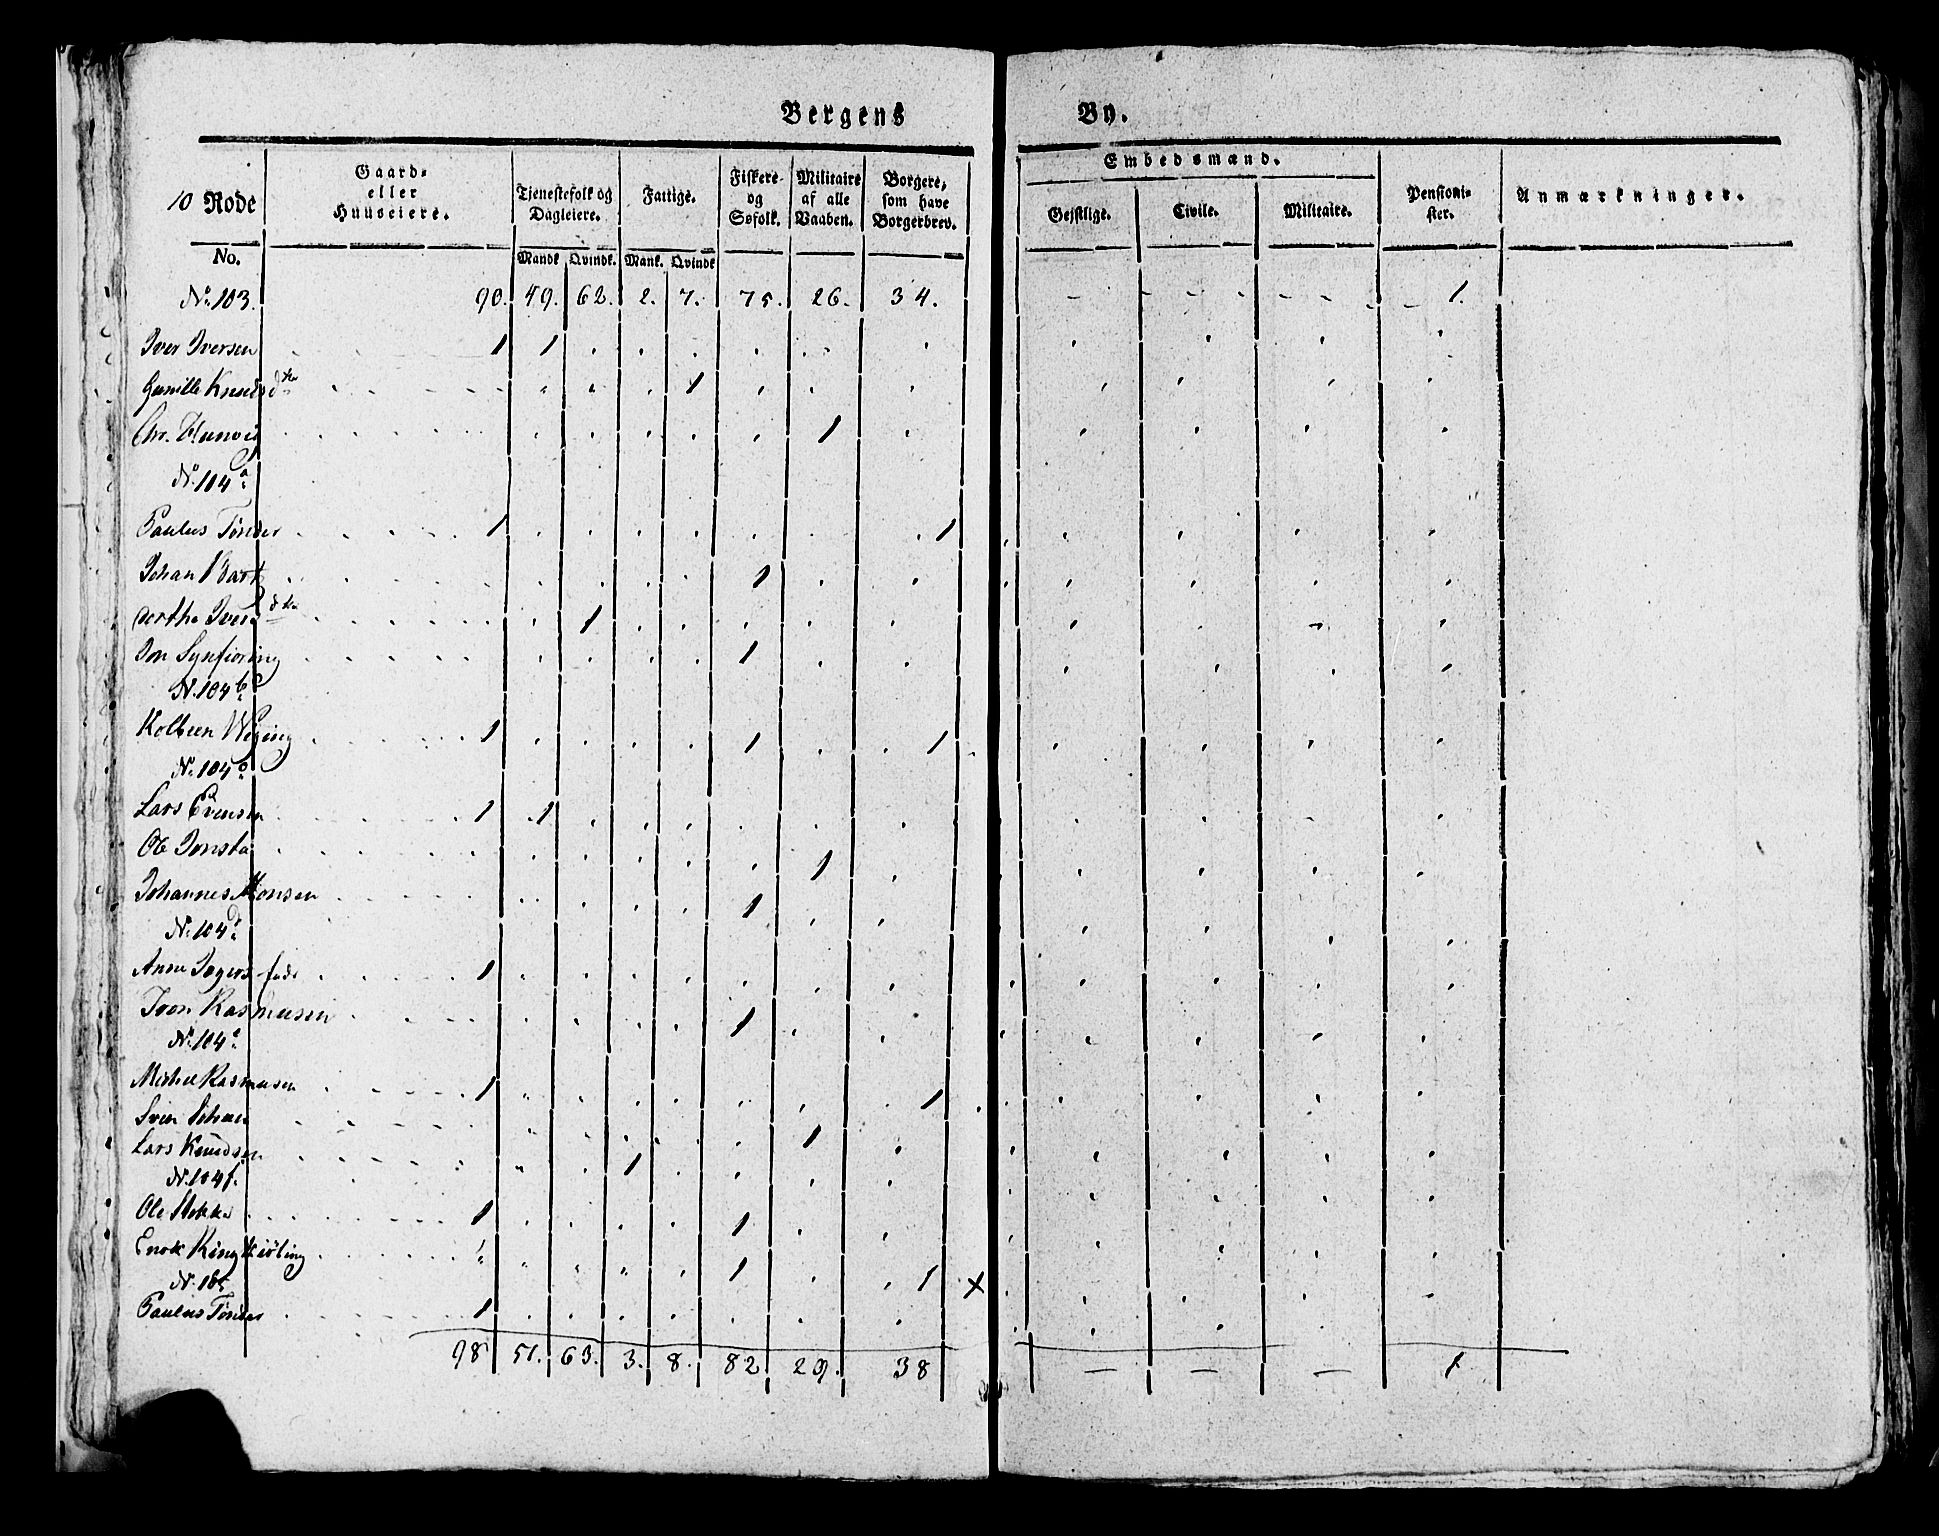 Bergens By.
10 Rode
No.
Gaard- eller Huuseiere.
Tjenestefolk og Dagleiere.
Mandk Qvindk.
Fattige.
Mank. Qvindk
Fiskere- og Søfolk.
Militaire af alle Vaaben.
Borgere, som have Borgerbrev.
Embedsmænd.
Gejstlige. Civile. Militaire.
Pensioni- ster.
Anmærkninger.
No. 103. 90. 49. 62. 2. 7. 75. 26. 34. - - - 1.
Iver Iversen 1 1
Gunille Knudsdtr 1
Chr. 1
No. 104a
Paulus Tønder 1 1
Johan 1
dorthe Iversdtr 1
Jon Synfioring 1
N. 104b
Kolbeen 1 1 1
N. 104c
Lars Evensen 1 1
Ole Jonsta 1
Johannes Monsen 1
N. 104d
Anna 1
Iver Rasmusen 1
N. 104e
Michel Rasmusen 1 1
Svein Johan 1
Lars Knudsen 1
N. 104f.
Ole Stokke 1 1
Enok Ringkiøbing 1 1 x
N. 105
Paulus Tønder 1
98 51. 63. 3. 8. 82 29. 38 — — — 1